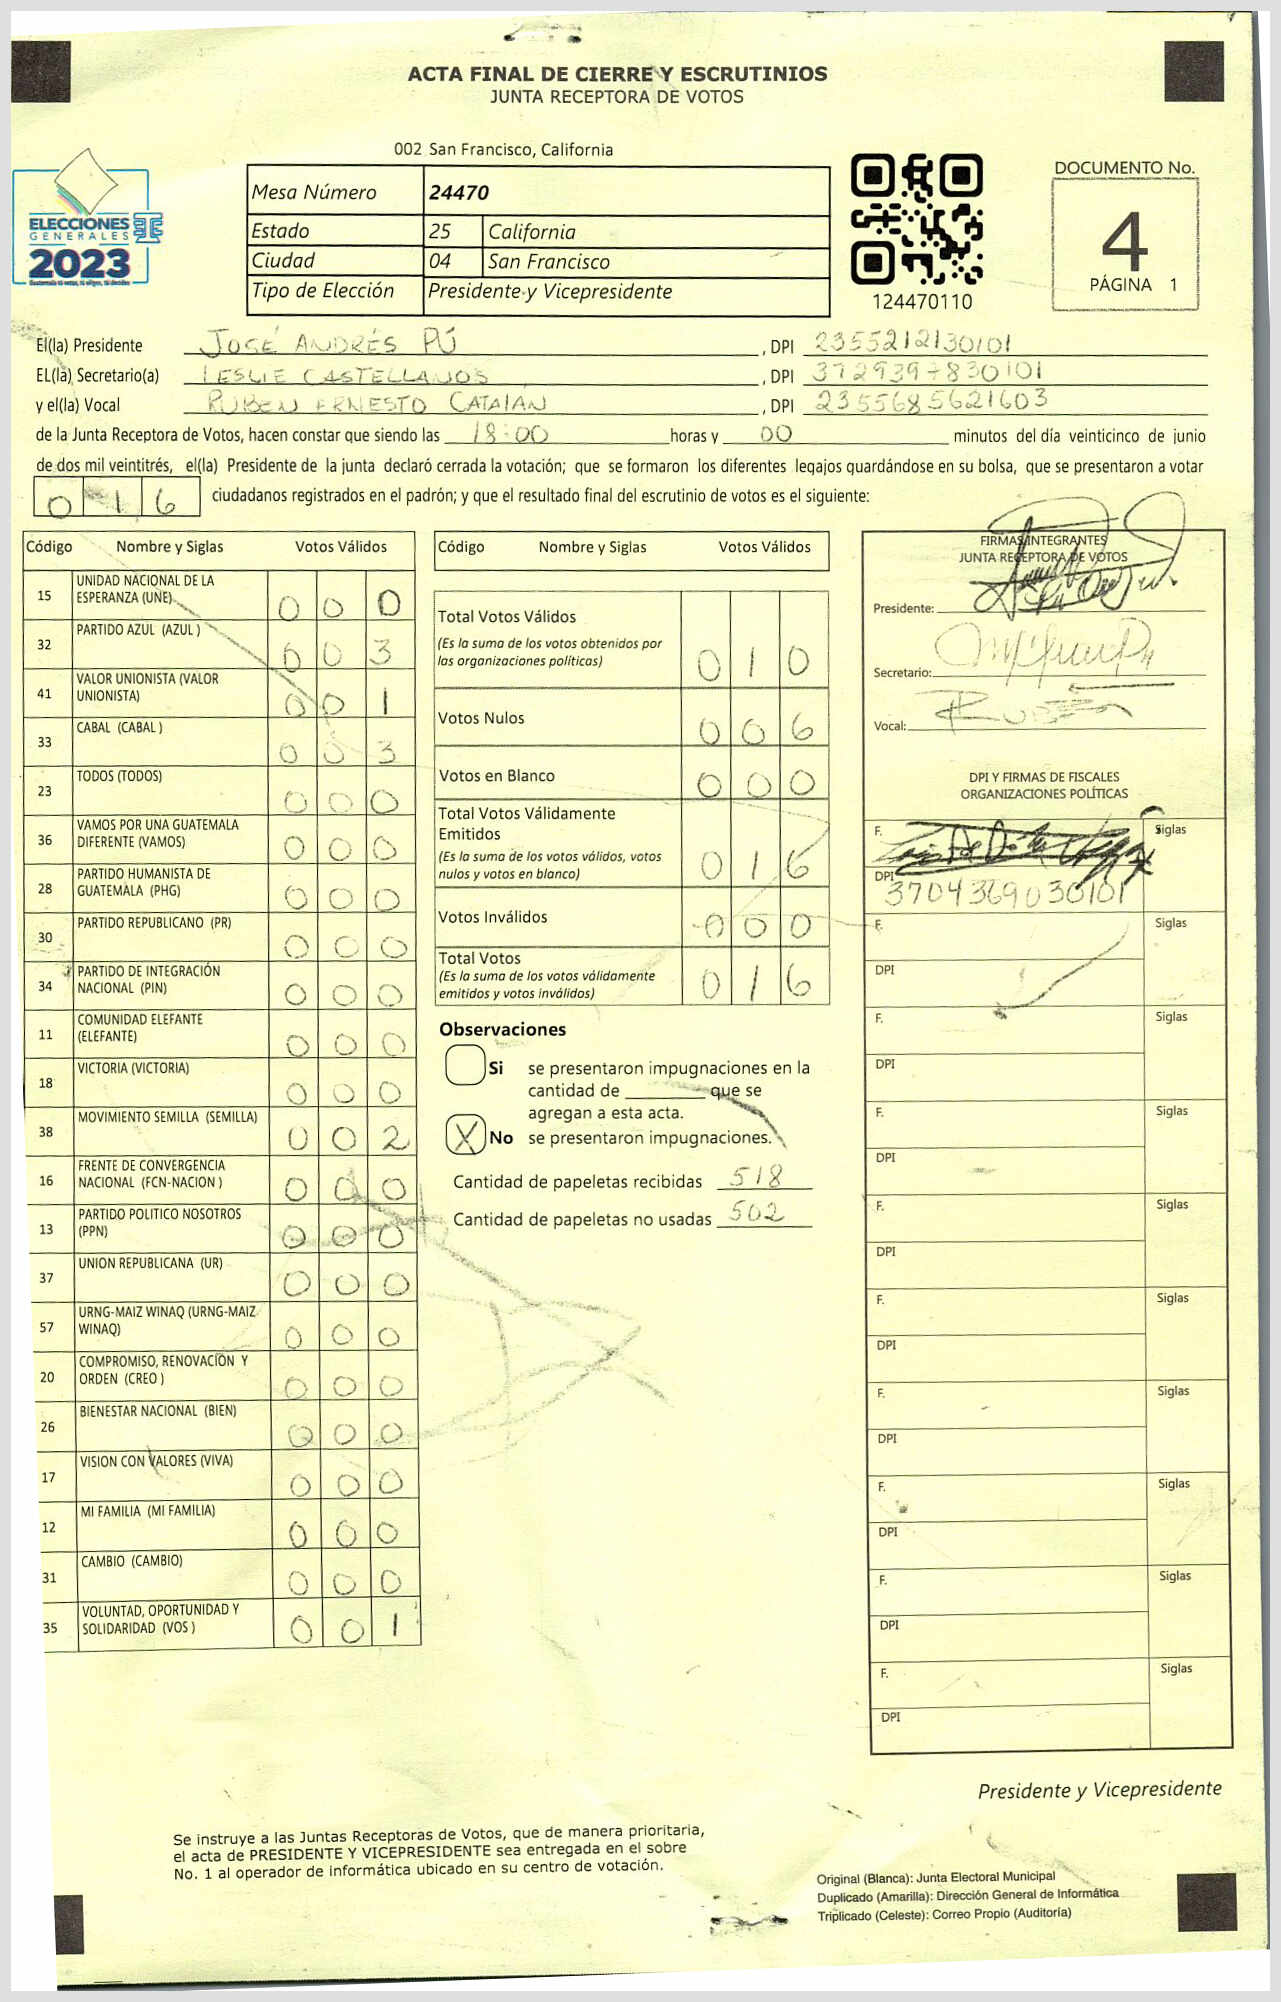 ACTA FINAL DE CIERRE Y ESCRUTINIOS
JUNTA RECEPTORA DE VOTOS
002 San Francisco, California
ELECCIONES
GENERALES
2023
Mesa Número 24470
Estado 25 California
Ciudad 04 San Francisco
Tipo de Elección Presidente y Vicepresidente
124470110
DOCUMENTO No.
4
PÁGINA 1
El(la) Presidente JOSÉ ANDRÉS PÚ, DPI 2355212130101
EL(la) Secretario(a) LESLIE CASTELLANOS, DPI 3729397830101
y el(la) Vocal RUBEN ERNESTO CATALAN, DPI 2355685621603
de la Junta Receptora de Votos, hacen constar que siendo las 18:00 horas y 00 minutos del día veinticinco de junio
de dos mil veintitrés, el(la) Presidente de la junta declaró cerrada la votación; que se formaron los diferentes legajos guardándose en su bolsa, que se presentaron a votar
016 ciudadanos registrados en el padrón; y que el resultado final del escrutinio de votos es el siguiente:
Código Nombre y Siglas Votos Válidos
15 UNIDAD NACIONAL DE LA ESPERANZA (UNE) 0 0 0
32 PARTIDO AZUL (AZUL ) 0 0 3
41 VALOR UNIONISTA (VALOR UNIONISTA) 0 0 1
33 CABAL (CABAL ) 0 0 3
23 TODOS (TODOS) 0 0 0
36 VAMOS POR UNA GUATEMALA DIFERENTE (VAMOS) 0 0 0
28 PARTIDO HUMANISTA DE GUATEMALA (PHG) 0 0 0
30 PARTIDO REPUBLICANO (PR) 0 0 0
34 PARTIDO DE INTEGRACIÓN NACIONAL (PIN) 0 0 0
11 COMUNIDAD ELEFANTE (ELEFANTE) 0 0 0
18 VICTORIA (VICTORIA) 0 0 0
38 MOVIMIENTO SEMILLA (SEMILLA) 0 0 2
16 FRENTE DE CONVERGENCIA NACIONAL (FCN-NACION ) 0 0 0
13 PARTIDO POLITICO NOSOTROS (PPN) 0 0 0
37 UNION REPUBLICANA (UR) 0 0 0
57 URNG-MAIZ WINAQ (URNG-MAIZ WINAQ) 0 0 0
20 COMPROMISO, RENOVACIÓN Y ORDEN (CREO ) 0 0 0
26 BIENESTAR NACIONAL (BIEN) 0 0 0
17 VISION CON VALORES (VIVA) 0 0 0
12 MI FAMILIA (MI FAMILIA) 0 0 0
31 CAMBIO (CAMBIO) 0 0 0
35 VOLUNTAD, OPORTUNIDAD Y SOLIDARIDAD (VOS ) 0 0 1
Código Nombre y Siglas Votos Válidos
Total Votos Válidos 0 1 0
(Es la suma de los votos obtenidos por
las organizaciones políticas)
Votos Nulos 0 0 6
Votos en Blanco 0 0 0
Total Votos Válidamente
Emitidos 0 1 6
(Es la suma de los votos válidos, votos
nulos y votos en blanco)
Votos Inválidos 0 0 0
Total Votos 0 1 6
(Es la suma de los votos válidamente
emitidos y votos inválidos)
Observaciones
Si se presentaron impugnaciones en la
cantidad de que se
agregan a esta acta.
X No se presentaron impugnaciones.
Cantidad de papeletas recibidas 518
Cantidad de papeletas no usadas 502
FIRMAS INTEGRANTES
JUNTA RECEPTORA DE VOTOS
Presidente:
Secretario:
Vocal:
DPI Y FIRMAS DE FISCALES
ORGANIZACIONES POLÍTICAS
F. Siglas
DPI 3704369030101
F. Siglas
DPI
F. Siglas
DPI
F. Siglas
DPI
F. Siglas
DPI
F. Siglas
DPI
F. Siglas
DPI
F. Siglas
DPI
F. Siglas
DPI
F. Siglas
DPI
Presidente y Vicepresidente
Se instruye a las Juntas Receptoras de Votos, que de manera prioritaria,
el acta de PRESIDENTE Y VICEPRESIDENTE sea entregada en el sobre
No. 1 al operador de informática ubicado en su centro de votación.
Original (Blanca): Junta Electoral Municipal
Duplicado (Amarilla): Dirección General de Informática
Triplicado (Celeste): Correo Propio (Auditoría)